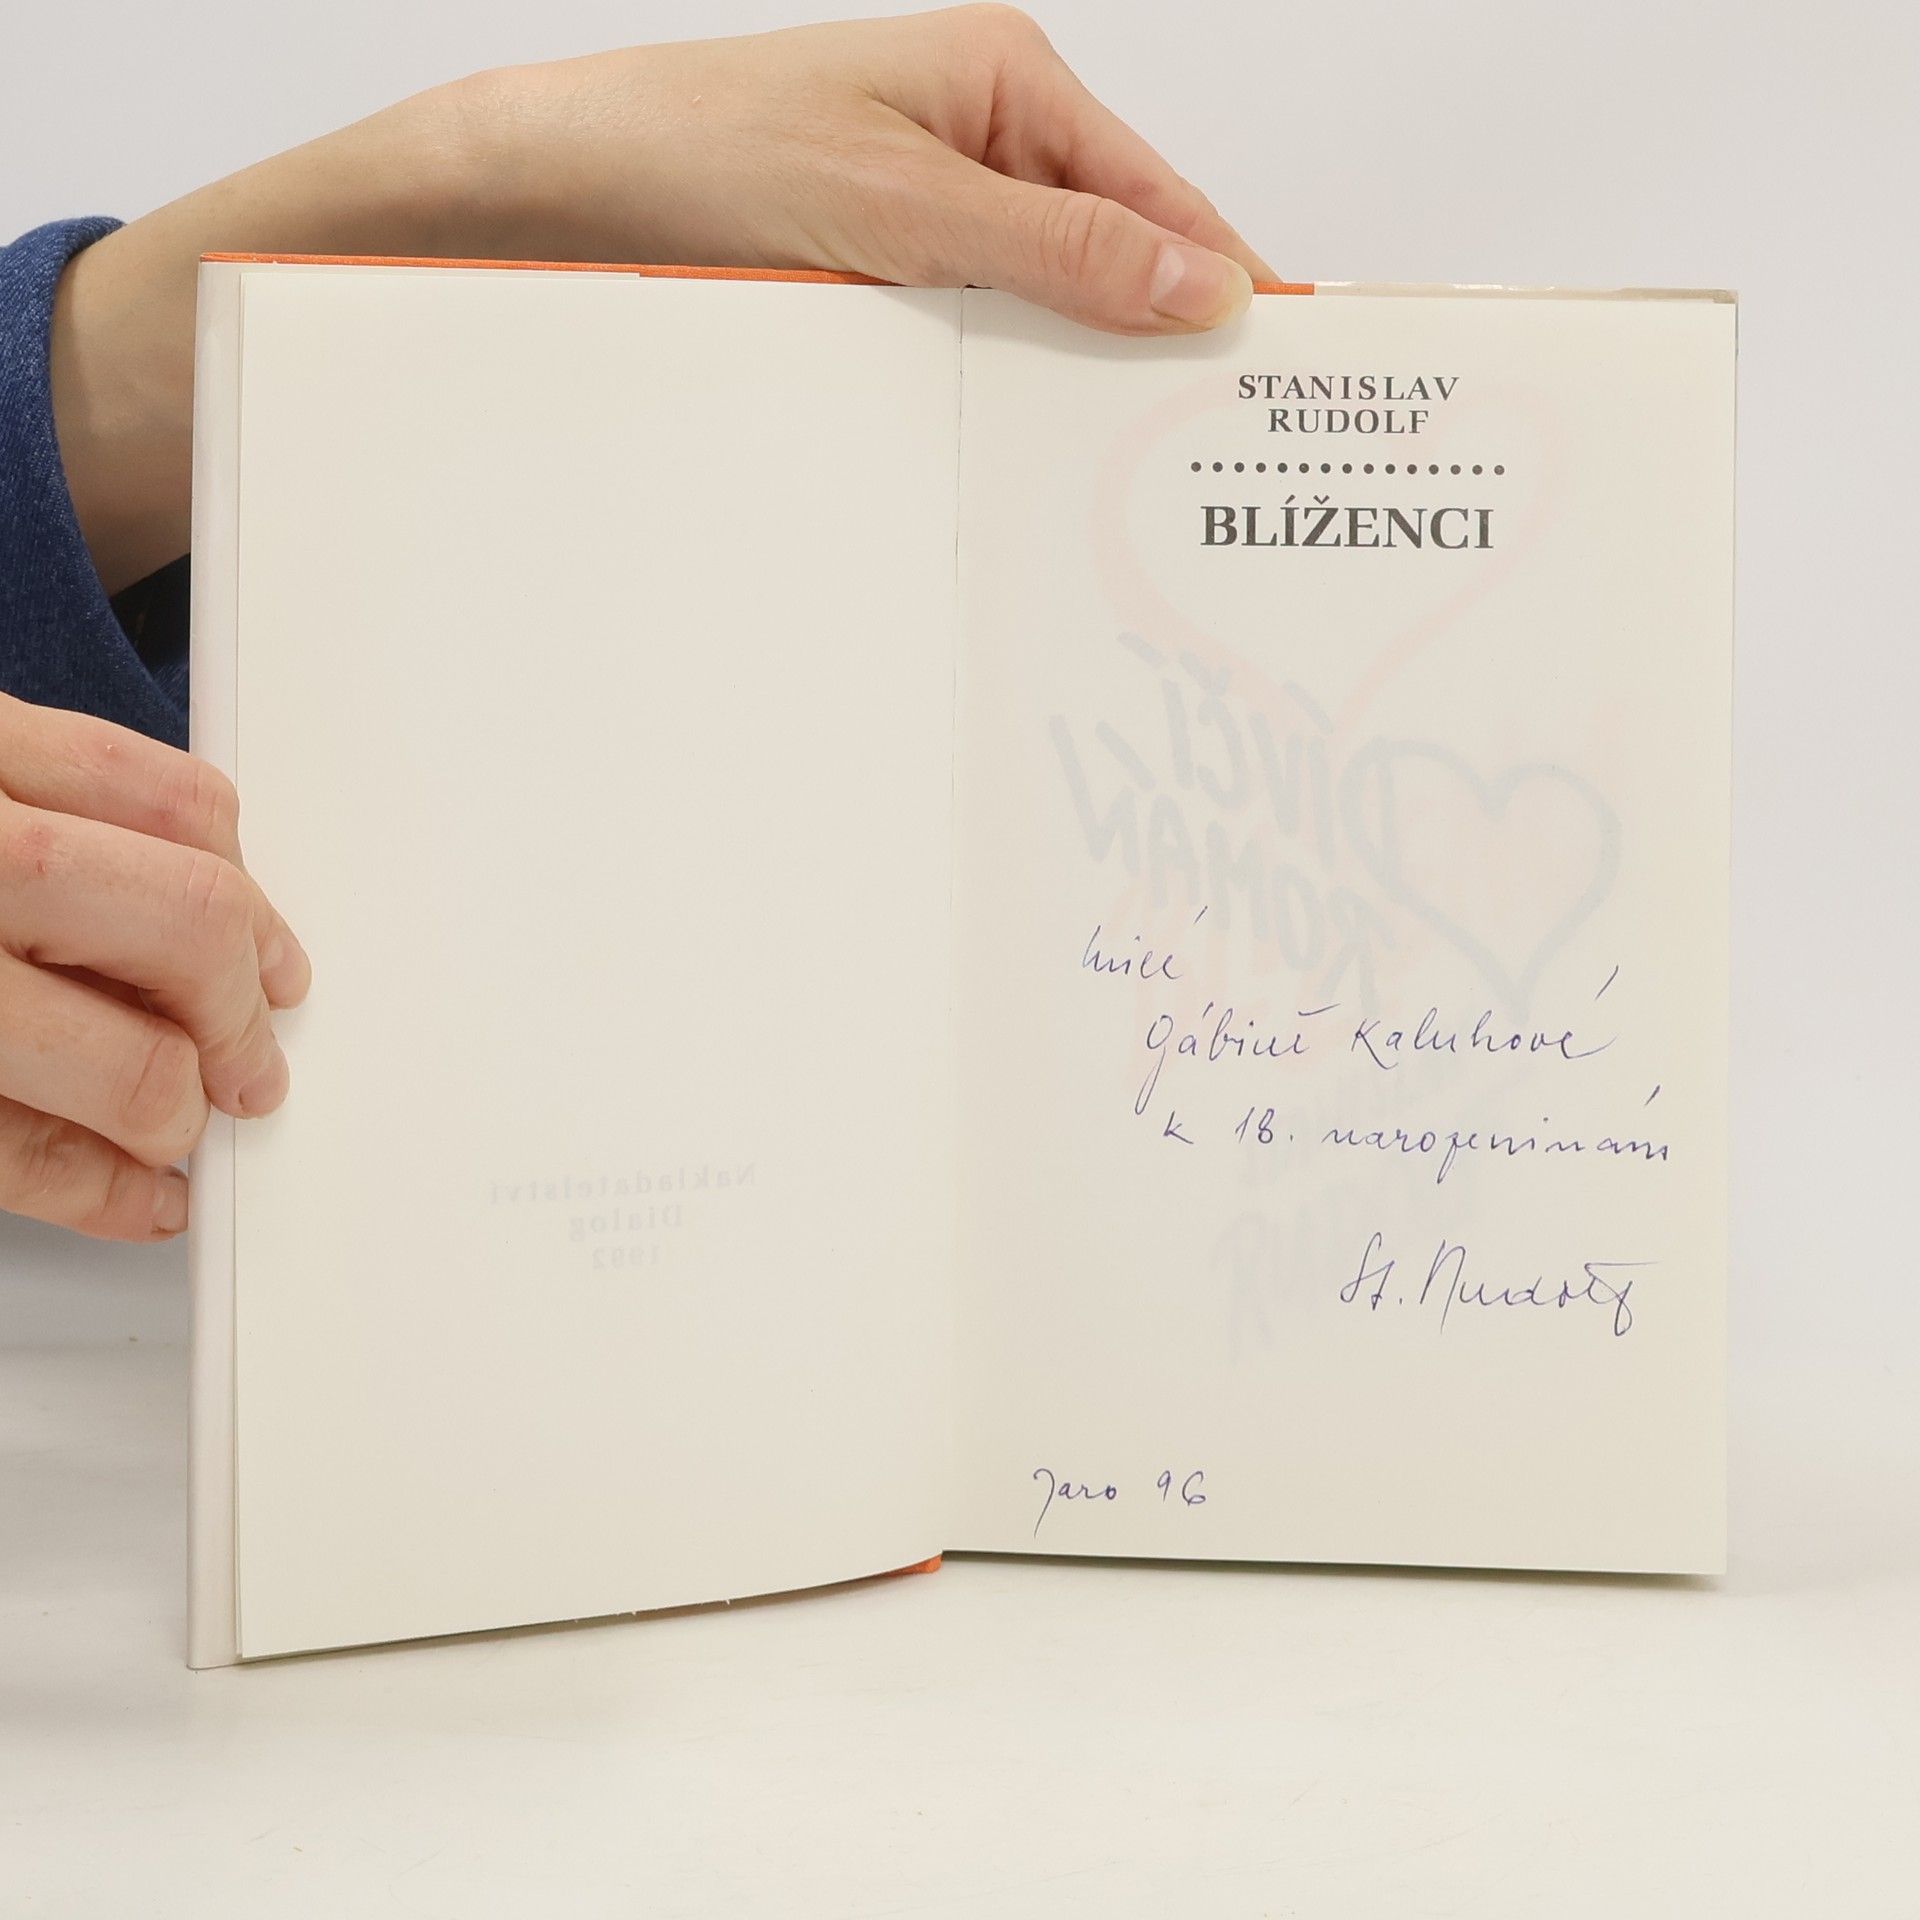 Nakladatelství
Dialog
1992
STANISLAV
RUDOLF
BLÍŽENCI
DÍVČÍ
ROMÁN
milé
Gábině Kaluhové
k 18. narozeninám
St. Rudolf
Jaro 96